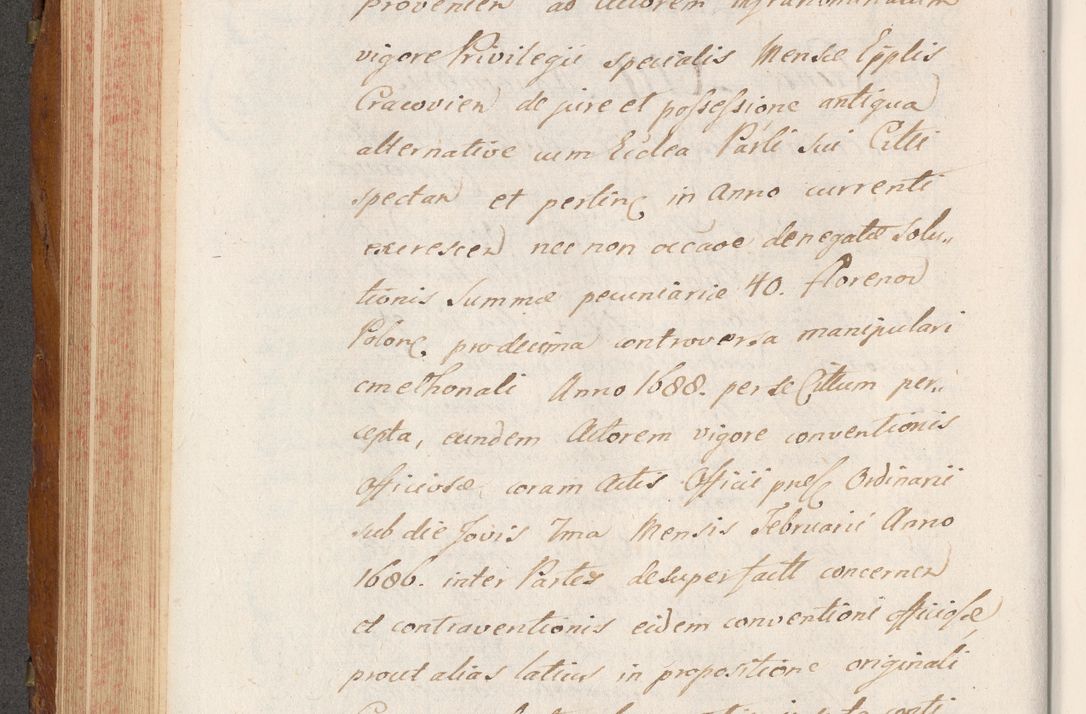 provenien ad Actorem infranominatum
vigore Privilegii specialis Mensæ Epplis
Cracovien de jure et possessione antiqua
alternative cum Ecclea Parli sui Citti
spectan et pertinen in Anno currenti
excrescen nec non occaõe denegatæ solu„
tionis Summæ pecuniariæ 40. florenor
Polonc pro decima controversa manipulari
cmethonali Anno 1688. per se Cittum per„
cepta, eundem Actorem vigore conventionis
officiosæ coram Actis Officii prnes Ordinarii
sub die Jovis 7ma Mensis Februarii Anno
1686. inter Partes desuper factæ concernen
et contraventionis eidem conventioni officiosæ,
prout alias latius in propositione originali